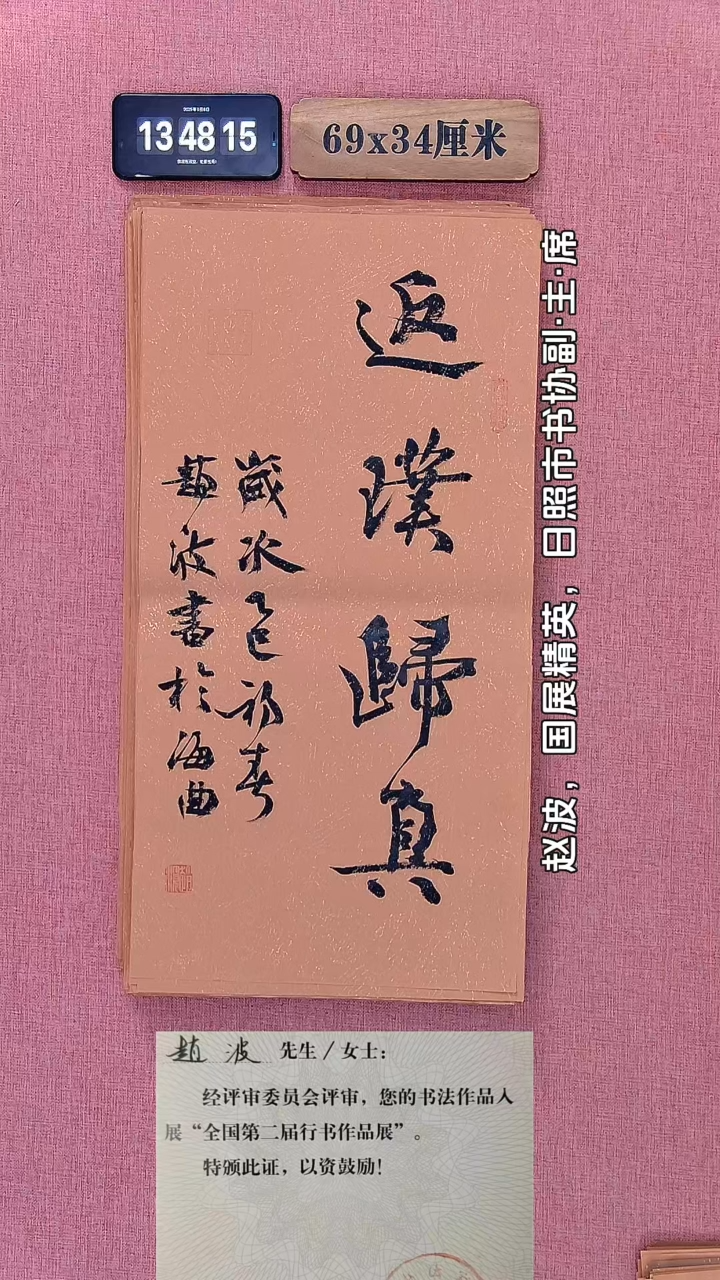 2025年1月6日
13 48 15
69x34厘米
返璞歸真
歲次乙巳初春
趙波書於海曲
赵波，国展精英，日照市书协副·主·席
趙波 先生/女士：
经评审委员会评审，您的书法作品入
展“全国第二届行书作品展”。
特颁此证，以资鼓励！